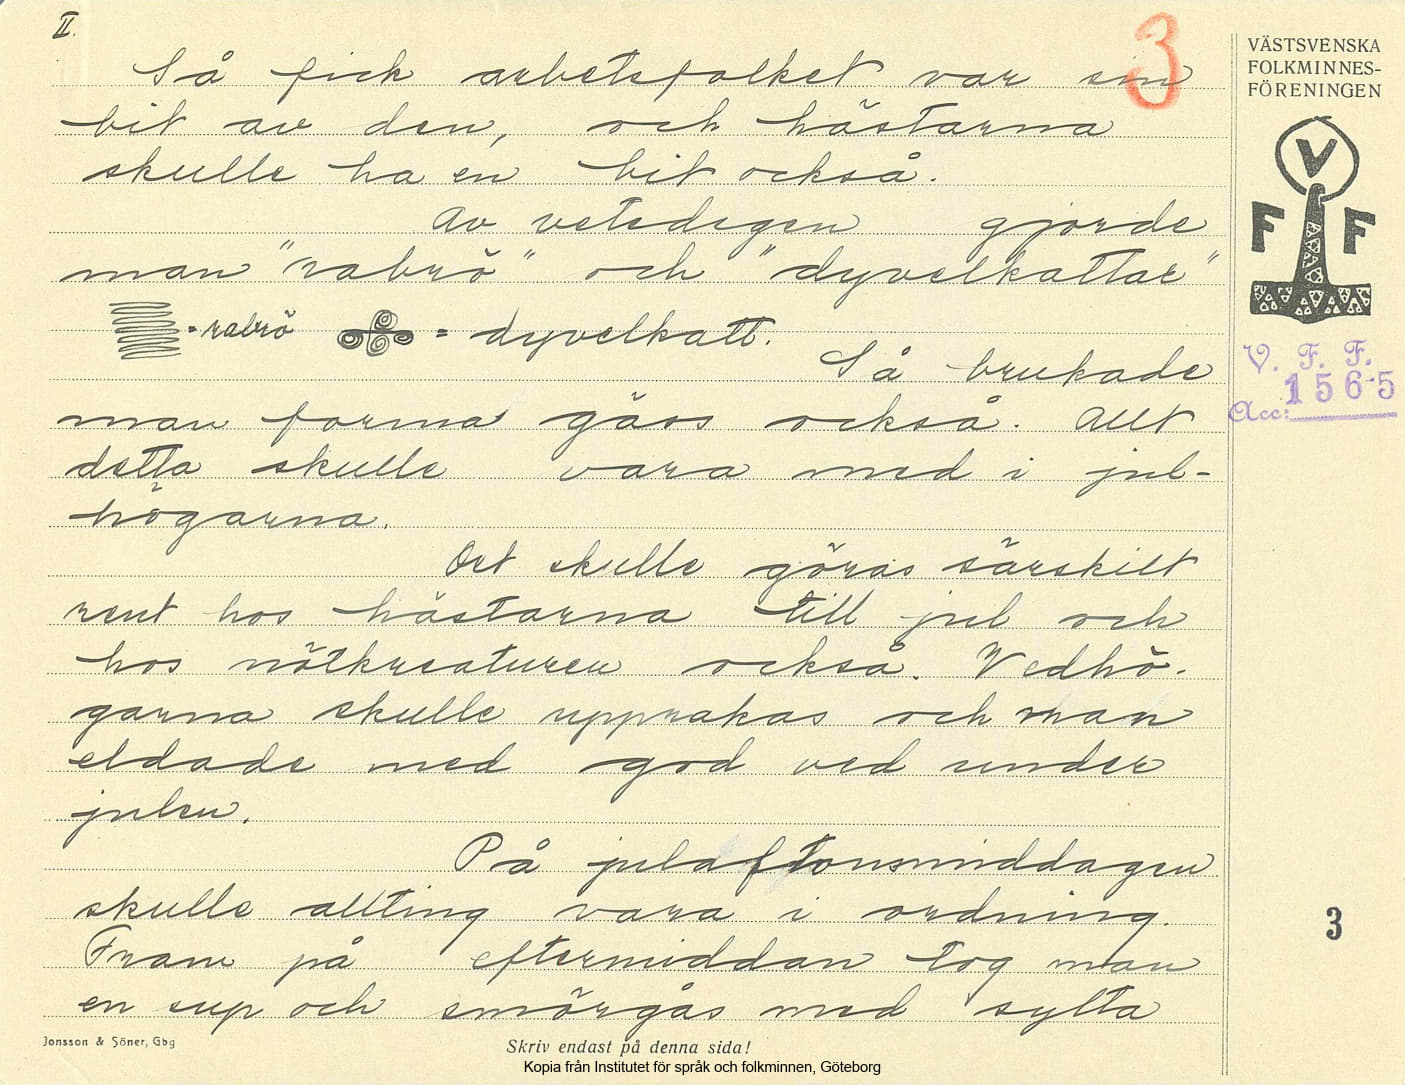 II.
3
Så fick arbetsfolket var sin
bit av den, och hästarna
skulle ha en bit också.
Av vetedegen gjorde
man "rabrö" och "dyvelkattar"
= rabrö = dyvelkatt.
Så brukade
man forma gäss också. Allt
detta skulle vara med i jul-
högarna.
Det skulle göras särskilt
rent hos hästarna till jul och
hos nötkreaturen också. Vedhö-
garna skulle upprakas och man
eldade med god ved under
julen.
På julaftonsmiddagen
skulle allting vara i ordning.
Fram på eftermiddan tog man
en sup och smörgås med sylta
VÄSTSVENSKA
FOLKMINNES-
FÖRENINGEN
V
F F
V. F. F.
1565
Acc:
3
Jonsson & Söner, Gbg
Skriv endast på denna sida!
Kopia från Institutet för språk och folkminnen, Göteborg